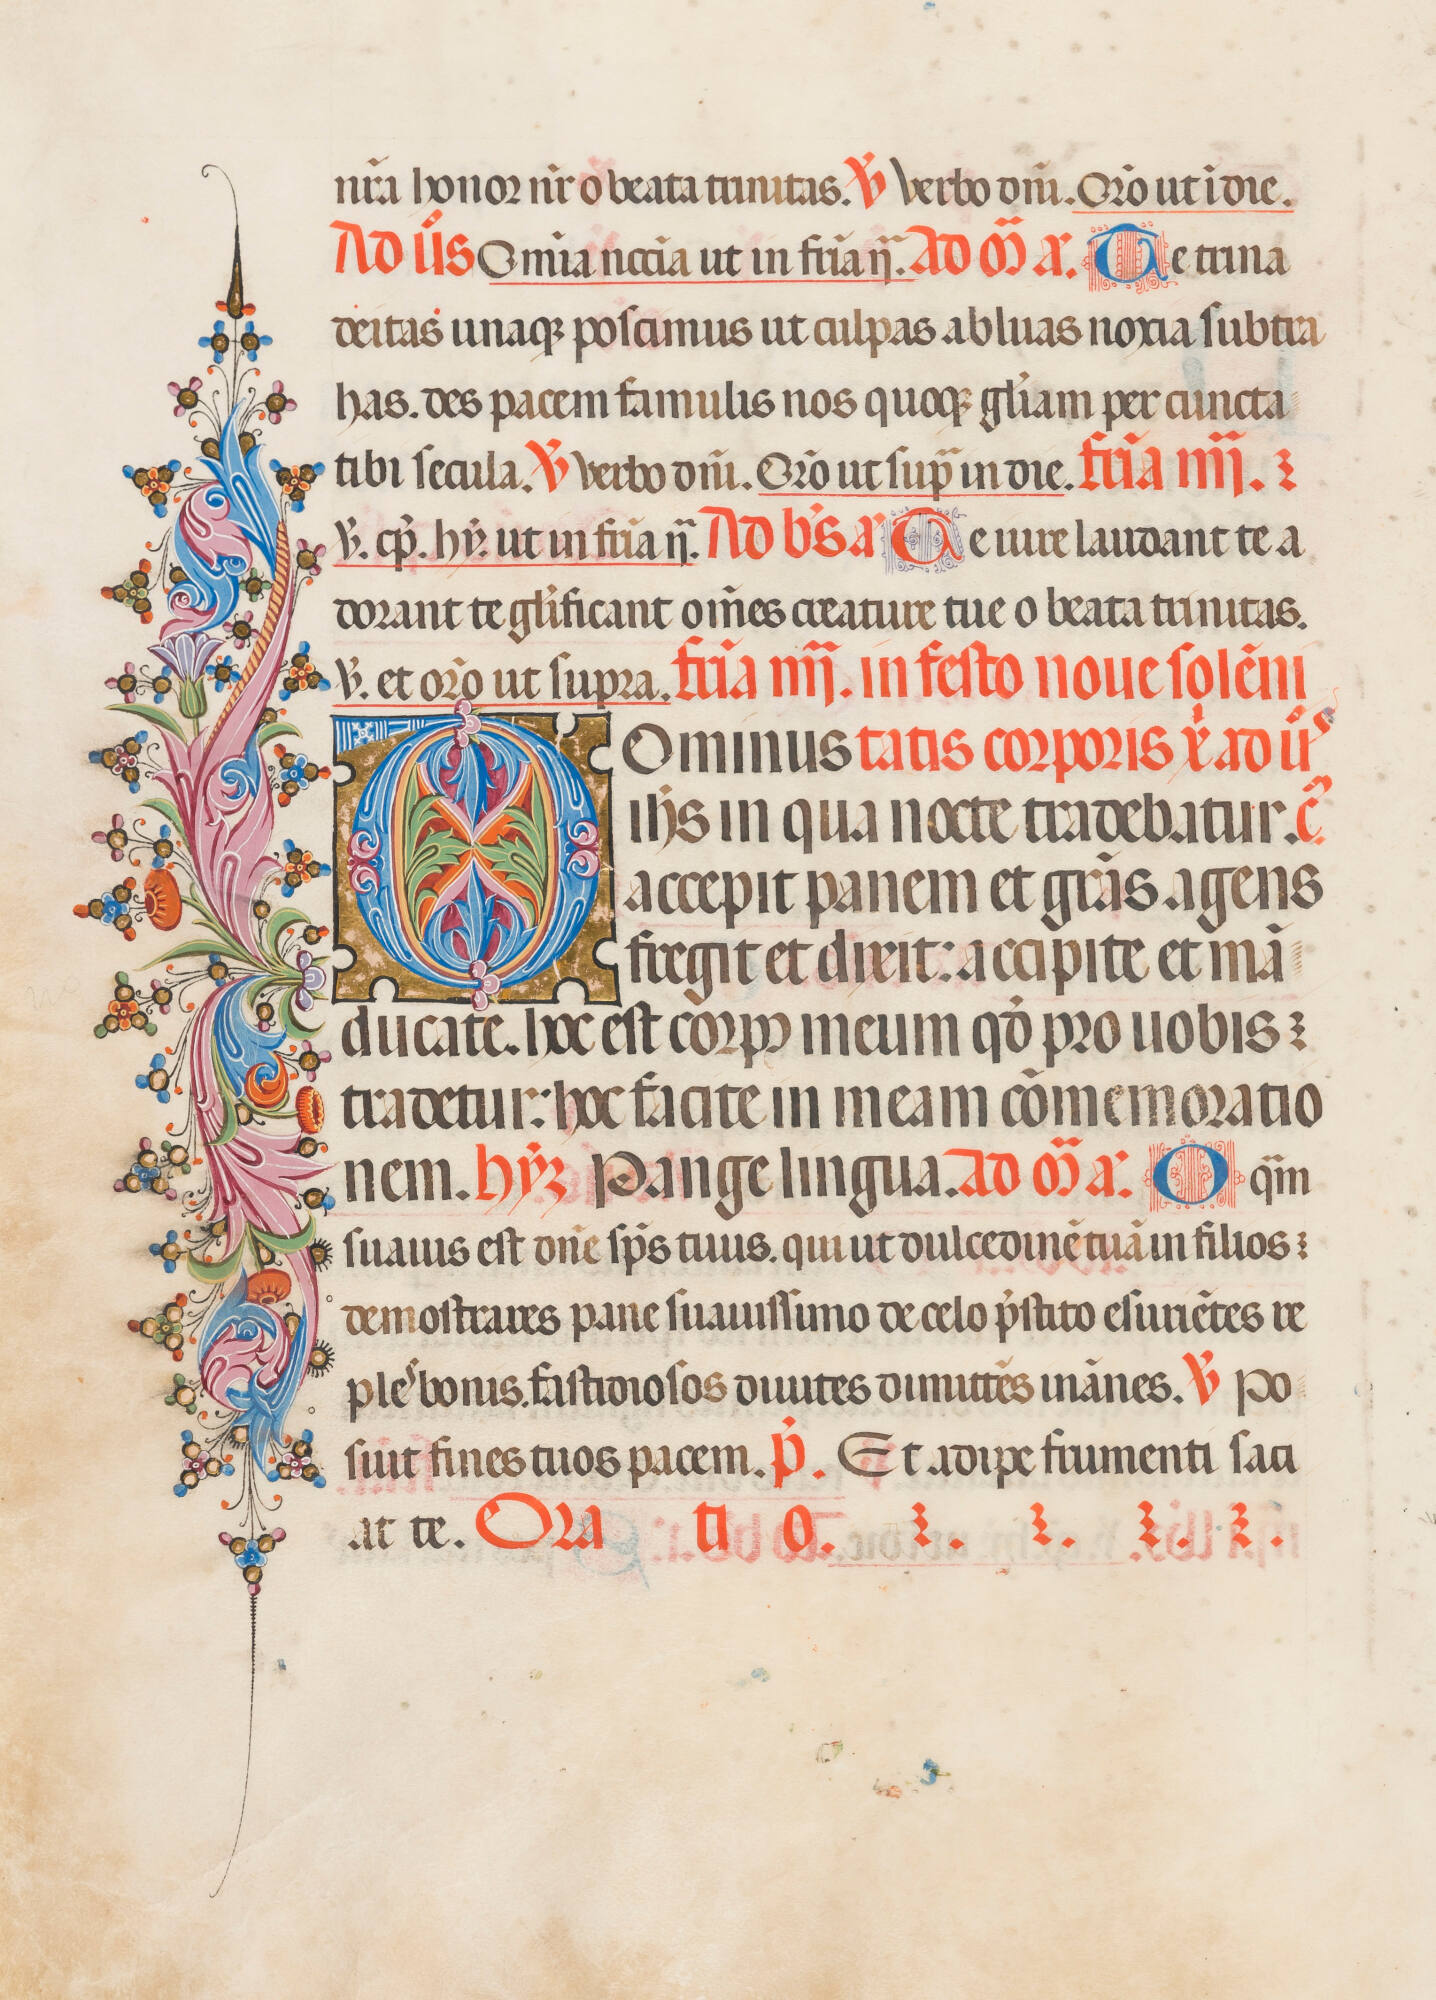 nr̄a honor nr̄ o beata trinitas. ℣ verbo dn̄i. Or̄o ut i die.
Ad ūs Om̄ia nocc̄ia ut in fr̄ia ij. Ad m̄ a. Te trina
deitas unaqꝫ poscimus ut culpas abluas noxia subtra
has. des pacem famulis nos quoqꝫ gl̄iam per cuncta
tibi secula. ℣ verbo dn̄i. Or̄o ut sup̄ in die. fr̄ia iiij.
℣. cp̄. hȳ. ut in fr̄ia ij. Ad b̄s a Te iure laudant te a
dorant te gl̄ificant om̄es creature tue o beata trinitas.
℣. et or̄o ut supra. fr̄ia iiij. in festo noue solēni
Dominus tatis corporis xp̄i ad ūs
ih̄s in qua nocte tradebatur. c̄
accepit panem et gr̄as agens
fregit et dixit: accipite et mā
ducate. hoc est corpꝰ meum qd̄ pro uobis
tradetur: hoc facite in meam cōmemoratio
nem. hȳꝫ Pange lingua. Ad m̄ a. O qm̄
suauis est dn̄e sp̄s tuus. qui ut dulcedinē tuā in filios
demostrares pane suauissimo de celo p̄stito esuriētes re
plēs bonis. fastidiosos diuites dimittēs inānes. ℣ Po
suit fines tuos pacem. ṗ. Et adipe frumenti saci
at te. Oratio.